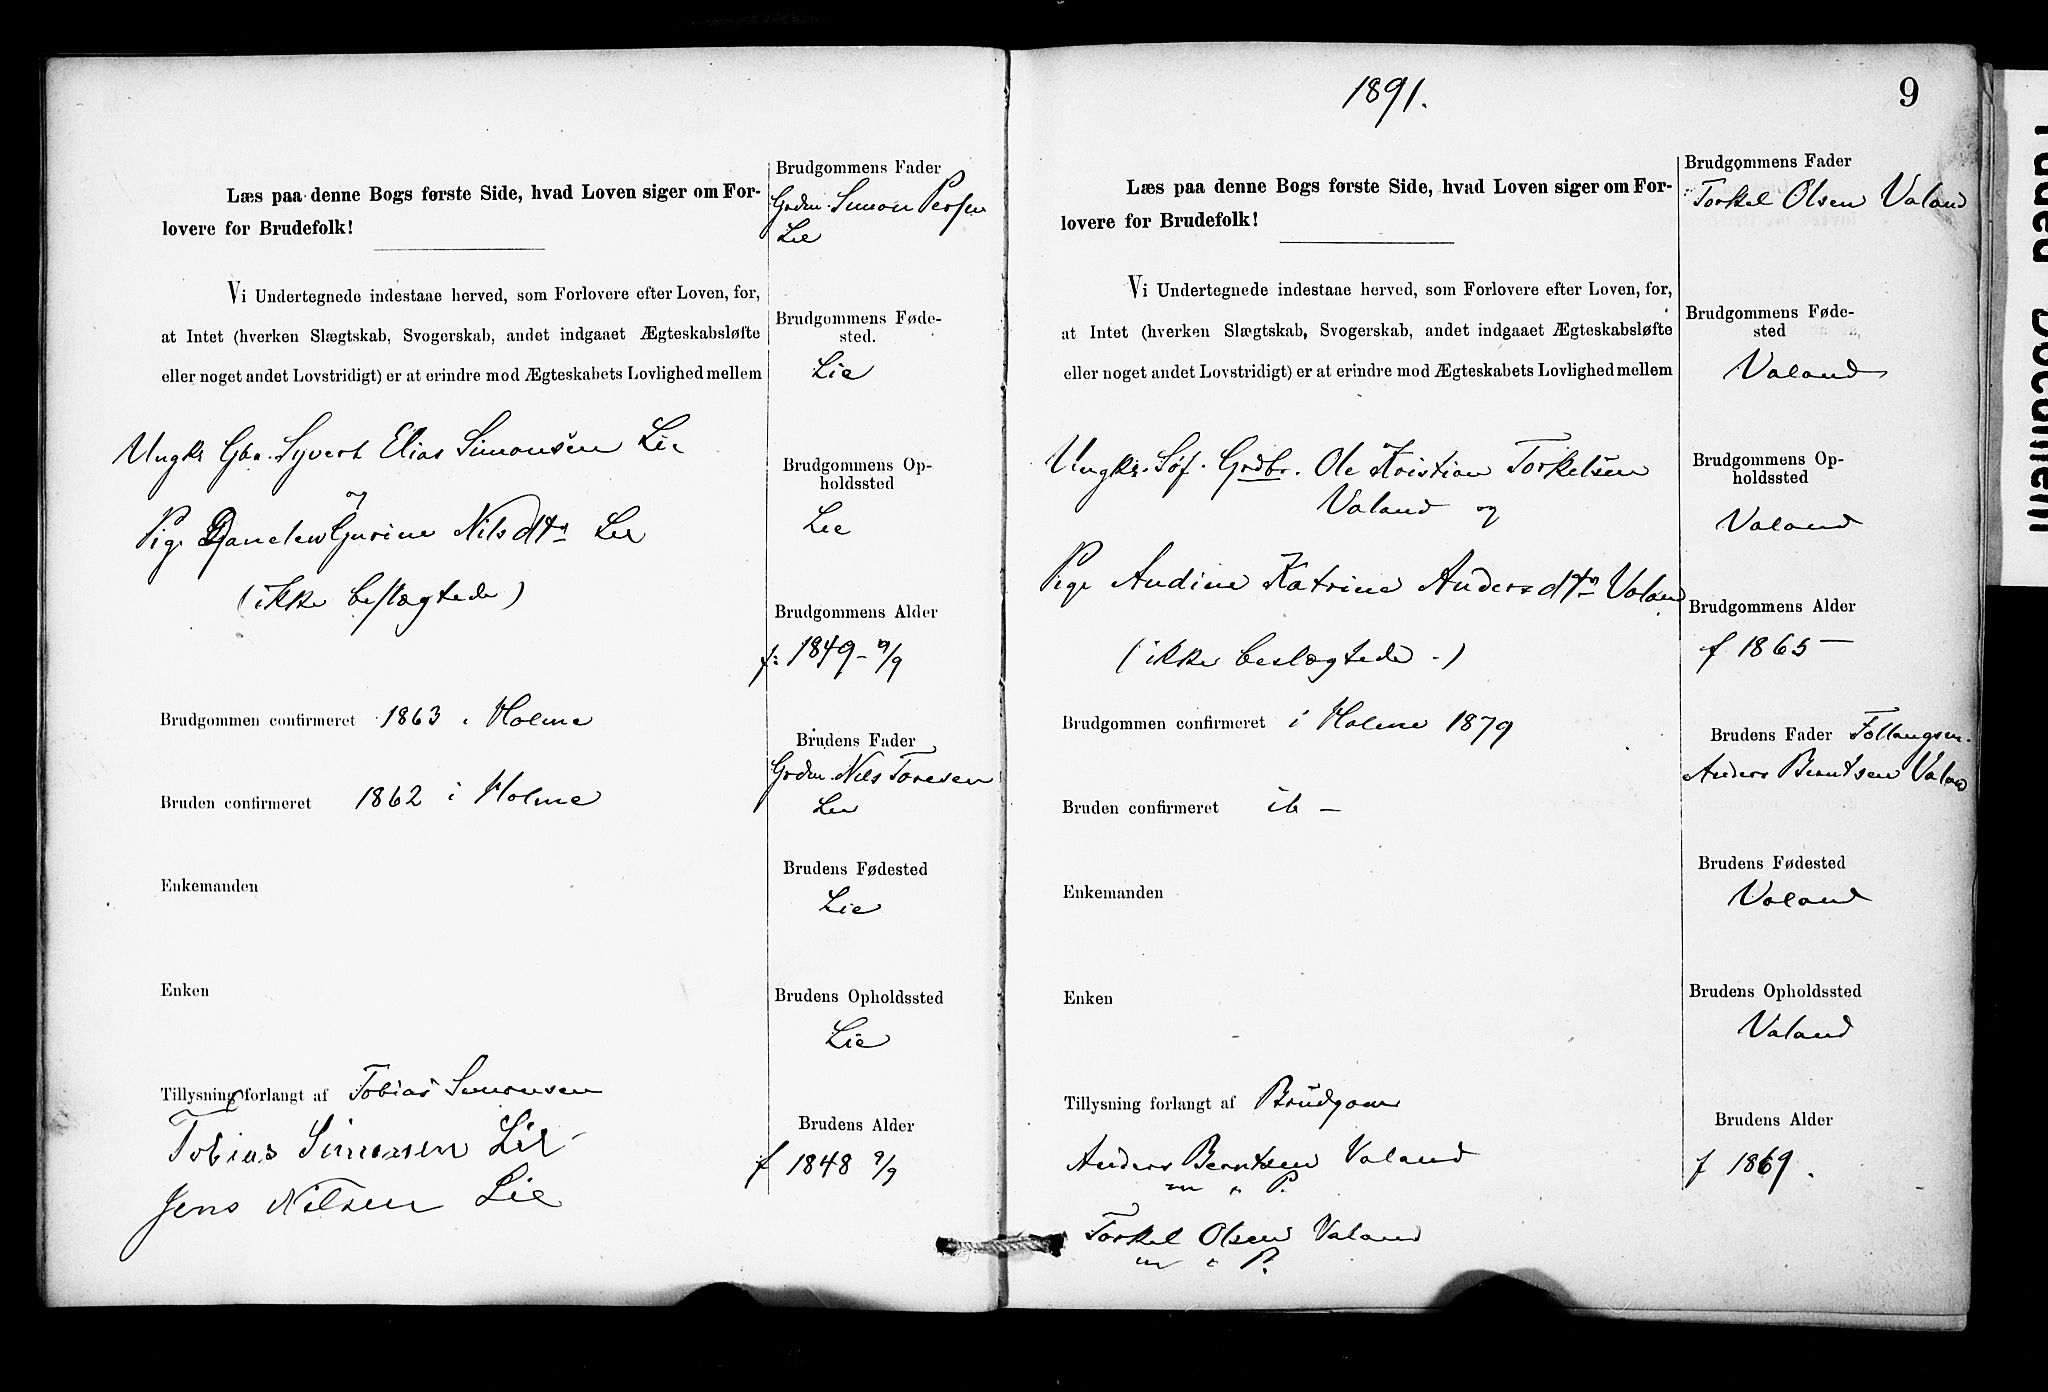 Læs paa denne Bogs første Side, hvad Loven siger om For-
lovere for Brudefolk!
Vi Undertegnede indestaae herved, som Forlovere efter Loven, for,
at Intet (hverken Slægtskab, Svogerskab, andet indgaaet Ægteskabsløfte
eller noget andet Lovstridigt) er at erindre mod Ægteskabets Lovlighed mellem
Ungkr Gbr. Syvert Elias Simonsen Lie
og
Pige Gurine Nilsdtr Lie
(ikke beslægtede)
Brudgommen confirmeret 1863 i Holme
Bruden confirmeret 1862 i Holme
Enkemanden
Enken
Tillysning forlangt af Tobias Simonsen
Tobias Simonsen Lie
Jens Nilsen Lie
Brudgommens Fader
Grdm. Simon Persen
Lie
Brudgommens Føde-
sted.
Lie
Brudgommens Op-
holdssted
Lie
Brudgommens Alder
f: 1849 - 9/9
Brudens Fader
Grdm. Nils Toresen
Lie
Brudens Fødested
Lie
Brudens Opholdssted
Lie
Brudens Alder
f 1848 9/9
1891.
9
Læs paa denne Bogs første Side, hvad Loven siger om For-
lovere for Brudefolk!
Vi Undertegnede indestaae herved, som Forlovere efter Loven, for,
at Intet (hverken Slægtskab, Svogerskab, andet indgaaet Ægteskabsløfte
eller noget andet Lovstridigt) er at erindre mod Ægteskabets Lovlighed mellem
Ungkr. Søf. Grdbr. Ole Kristian Torkelsen
Valand og
Pige Andine Katrine Andersdtr Valand
(ikke beslægtede -)
Brudgommen confirmeret i Holme 1879
Bruden confirmeret ib -
Enkemanden
Enken
Tillysning forlangt af Brudgom
Anders Berntsen Valand
m i P.
Torkel Olsen Valand
m i P.
Brudgommens Fader
Torkel Olsen Valand
Brudgommens Føde-
sted
Valand
Brudgommens Op-
holdssted
Valand
Brudgommens Alder
f 1865 -
Brudens Fader
Anders Berntsen Valand
Brudens Fødested
Valand
Brudens Opholdssted
Valand
Brudens Alder
f 1869.